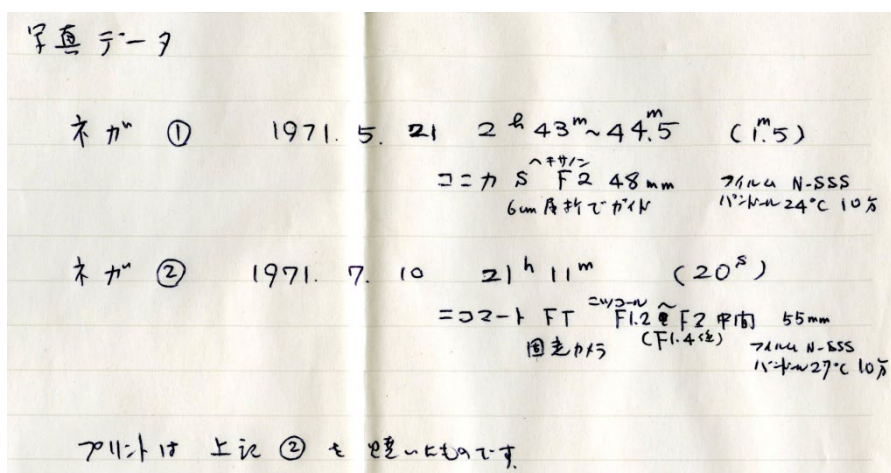 写真データ
ネガ ① 1971. 5. 21 2h 43m~44m.5 (1m.5)
ヘキサノン
コニカ S F2 48mm フィルム N-SSS
6cm屈折でガイド パンドール 24°C 10分
ネガ ② 1971. 7. 10 21h 11m (20s)
ニッコール
ニコマート FT F1.2~F2 中間 55mm
固定カメラ (F1.4位) フィルム N-SSS
パンドール 27°C 10分
プリントは 上記 ② を ものです.